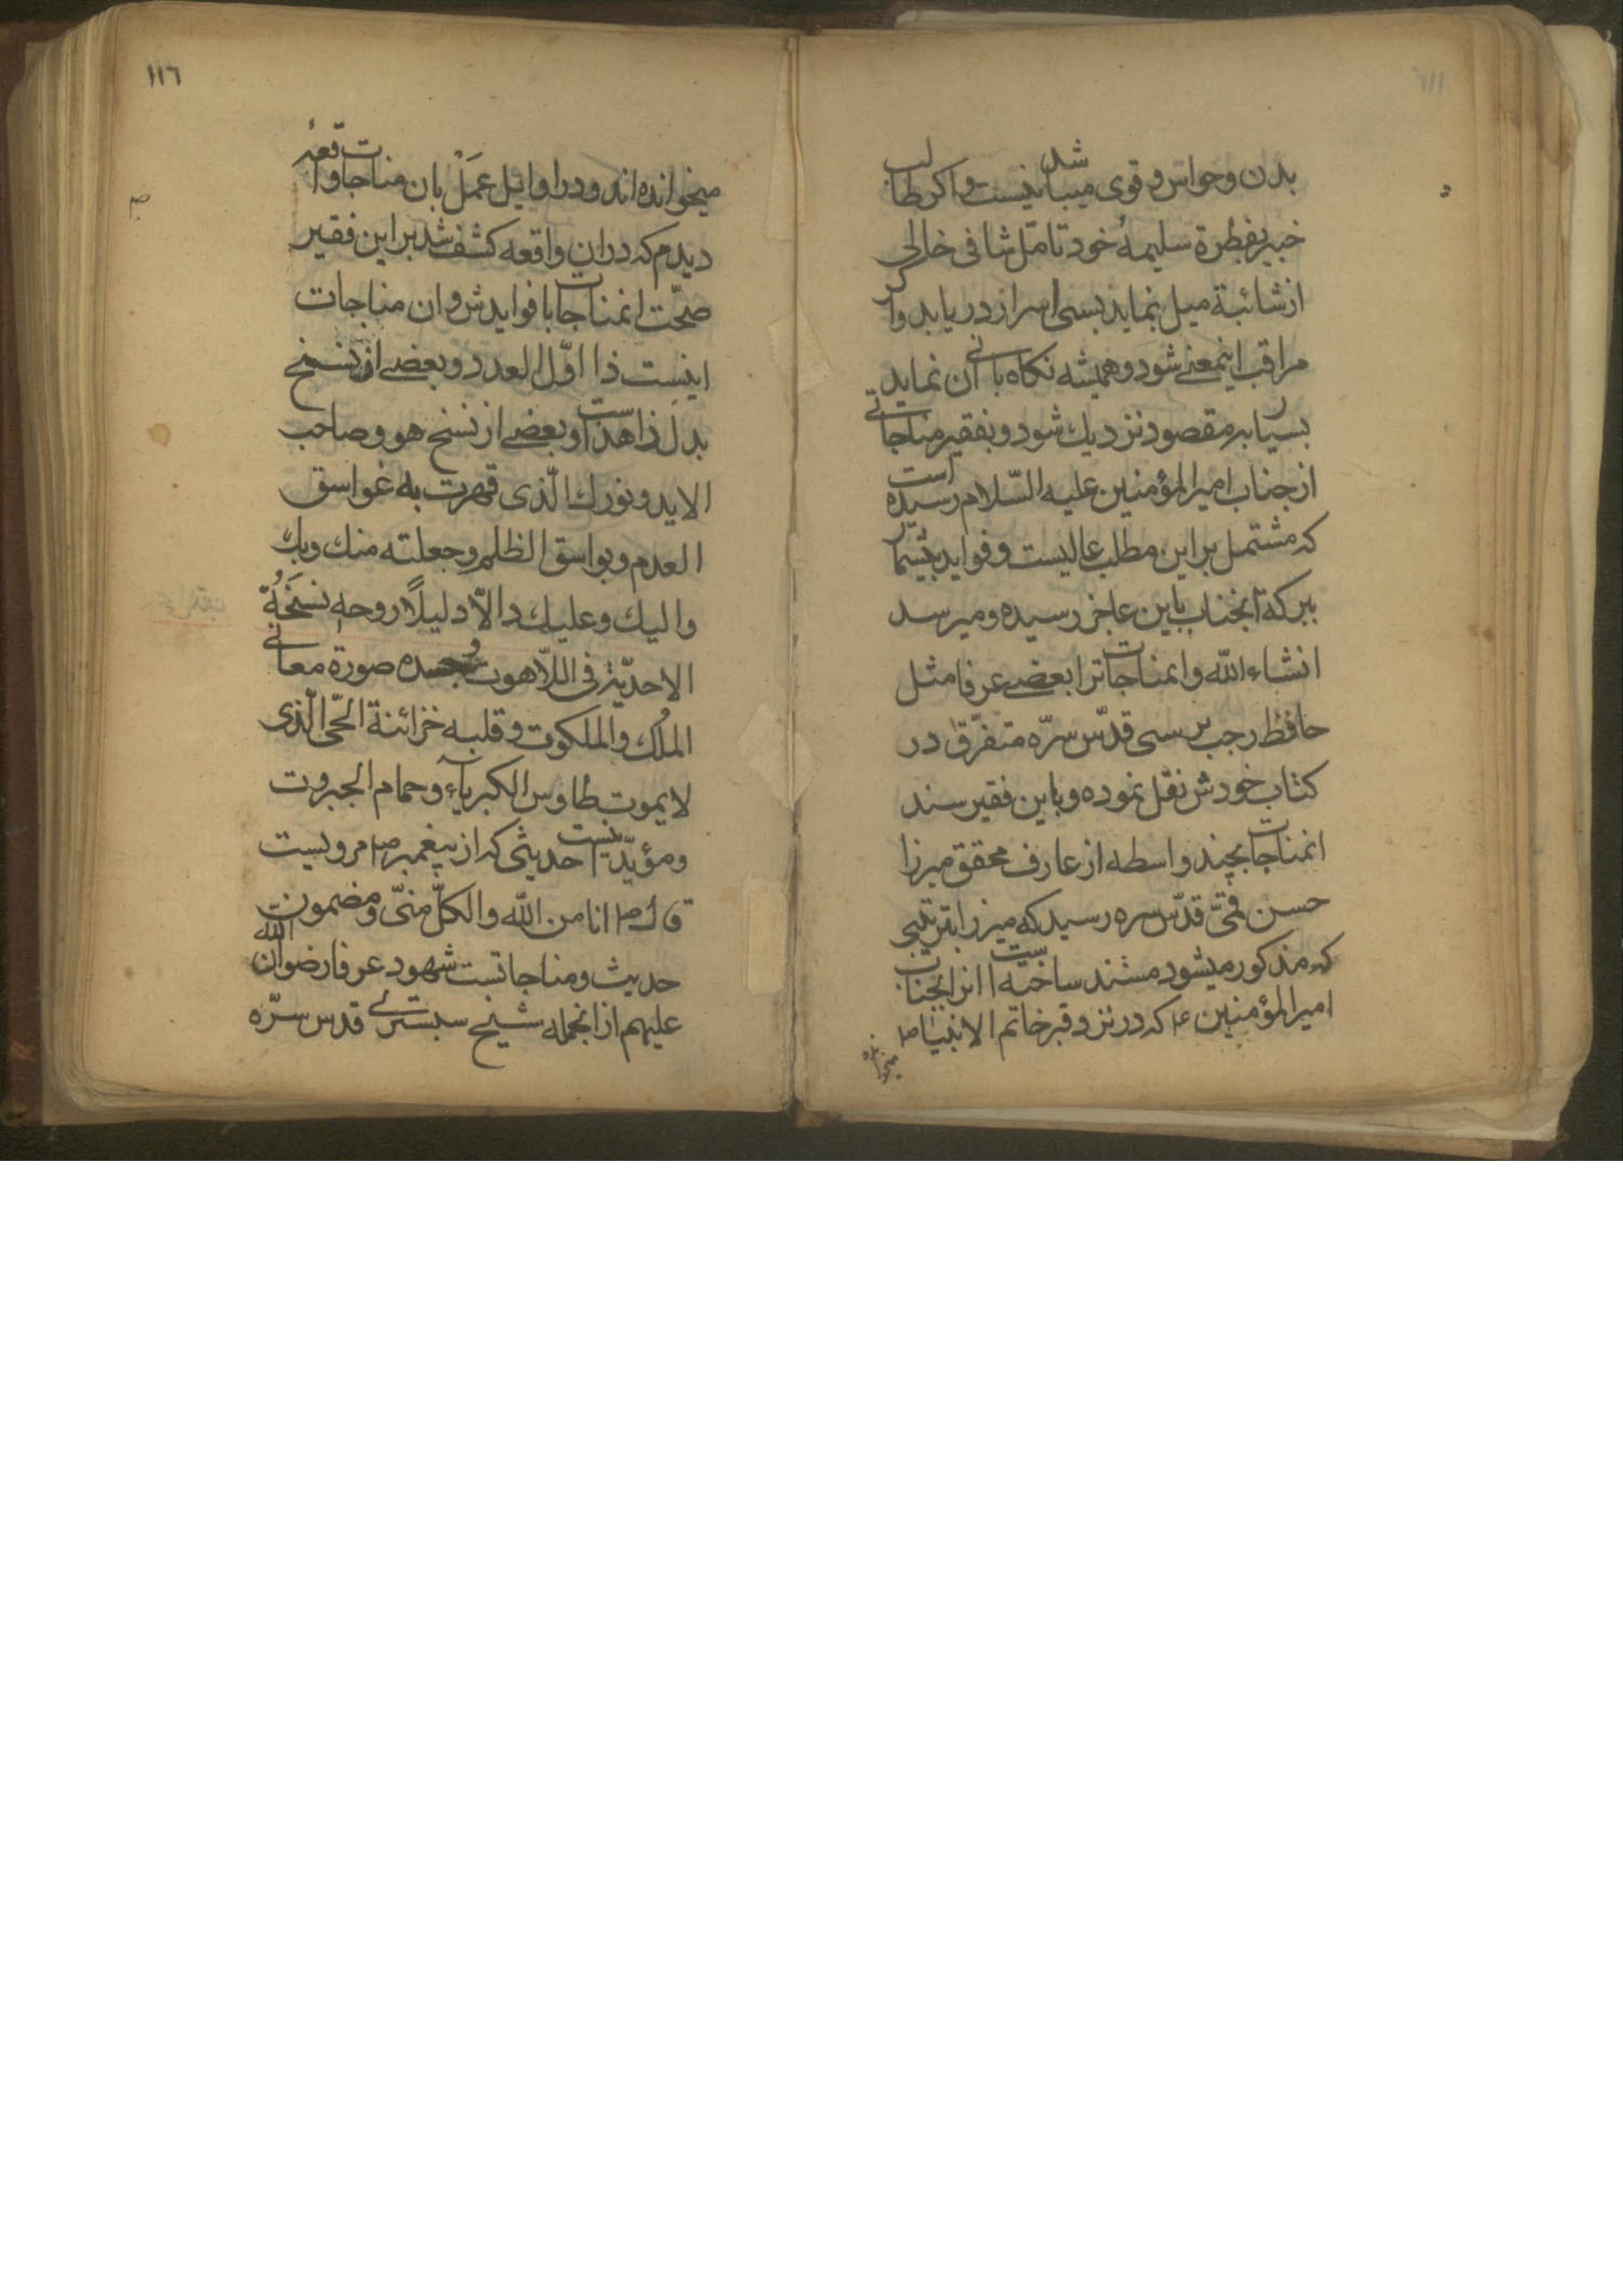 بدن و حواس و قوی میباشد نیست و اکر طالب
خبیر بفطرة سلیمهٔ خود تامّل شافی خالی
از شائبهٔ میل نماید بسی اسرار دریابد و اکر
مراقب اینمعنی شود و همیشه نکاه بانی آن نماید
بسیار بمقصود نزدیك شود و بفقیر مناجاتی
از جناب امیرالمؤمنین علیه السّلام رسیده است
که مشتمل بر این مطلب عالیست و فواید بیشمار
ببرکة آنجناب باین عاجز رسیده و میرسد
انشاء الله و اینمناجاترا بعضی عرفا مثل
حافظ رجب برسی قدّس سرّه متفرّق در
کتاب خودش نقل نموده و باین فقیر سند
اینمناجات بچند واسطه از عارف محقق میرزا
حسن قدّس سره رسید که میرزا بترتیبی
که مذکور میشود مستند ساخته است از آنجناب
امیرالمؤمنین ع که در نزد قبر خاتم الانبیا ص
١١٦
میخوانده اند و در اوایل عمل بان مناجات واقعهٔ
دیدم که در ان واقعه کشف شد بر این فقیر
صحّت اینمناجات با فوایدش و ان مناجات
اینست ذا اوّل العدد و بعضی از نسخ
بدل ذا هذا است و بعضی از نسخ هو و صاحب
الابد و نورك الّذی قهرت به غواسق
العدم و بواسق الظلم و جعلته منك وبك
والیك وعلیك دالاّ دلیلاً روحه نسخة
الاحدیّة فی اللاّهوت وجسده صورة معانی
الملك والملکوت وقلبه خزانة الحیّ الّذی
لایموت طاوس الکبریآء وحمام الجبروت
و مؤیّد اینست حدیثی که از پیغمبر ص مرویست
قال ص انا من الله والکلّ منّی و مضمون
حدیث و مناجاتست شهود عرفا رضوان الله
علیهم از انجمله شیخ سبستری قدس سرّه